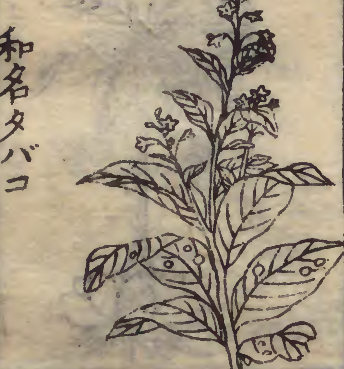 和名タバコ